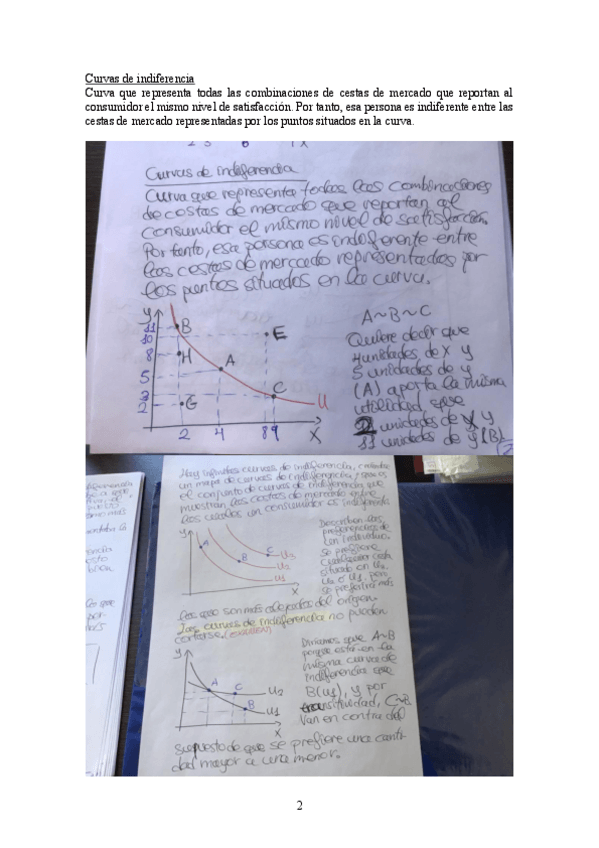 Curvas de indiferencia
Curva que representa todas las combinaciones de cestas de mercado que reportan al
consumidor el mismo nivel de satisfacción. Por tanto, esa persona es indiferente entre las
cestas de mercado representadas por los puntos situados en la curva.
Curvas de indiferencia
Curva que representa todas las combinaciones
de cestas de mercado que reportan al
consumidor el mismo nivel de satisfacción.
Por tanto, esa persona es indiferente entre
las cestas de mercado representadas por
los puntos situados en la curva.
y
11 B
10 E
8 H
A
5
3 C
2 G
U
2 4 8 9 X
A~B~C
Quiere decir que
4 unidades de x y
5 unidades de y
(A) aporta la misma
utilidad que
2 unidades de x y
11 unidades de y (B)
Hay infinitas curvas de indiferencia,
un mapa de curvas de indiferencia, que es
el conjunto de curvas de indiferencia que
muestran las cestas de mercado entre
los cuales un consumidor es indiferente
y
A B C
U3
U2
U1
X
Describen las
preferencias de
un individuo.
Se prefiere
cualquier cesta
situada en U2
o U1, pero
se preferirá más
las que son más alejadas del origen.
Las curvas de indiferencia no pueden
cortarse. (excelent)
y
A C U2
B U1
X
Diríamos que A~B
porque están en la
misma curva de
indiferencia que
B (U1), y por
transitividad, C~B
Van en contra del
supuesto de que se prefiere una canti-
dad mayor a una menor.
2